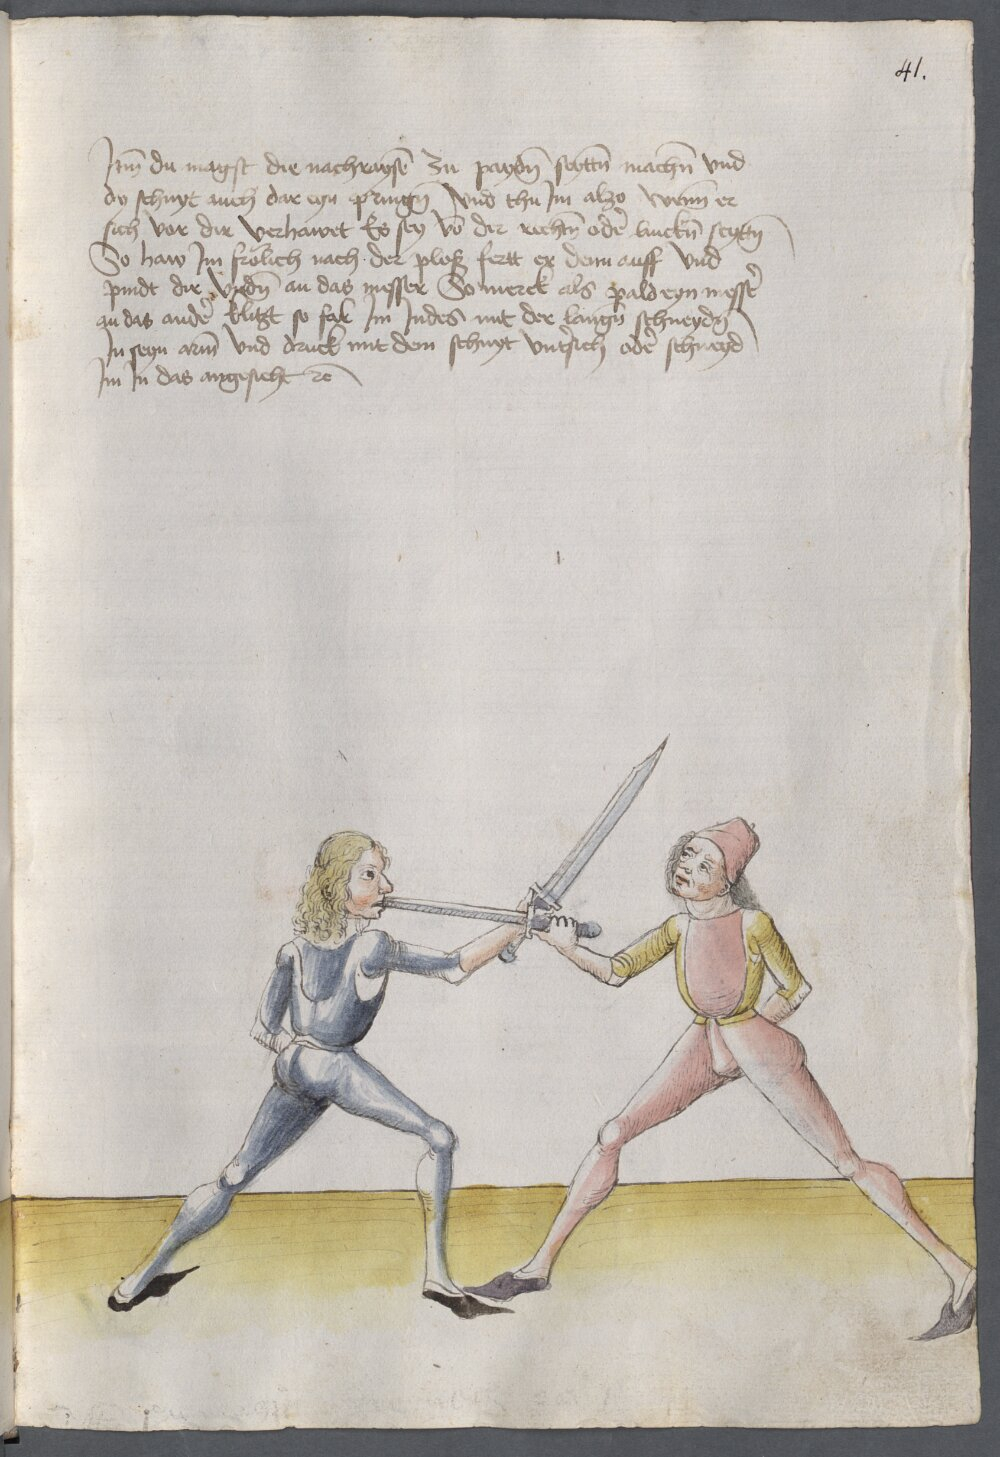 41.
Itm̄ du magst die nachraysē zu paydn̄ seyttn̄ machn̄ Vnd
dy schnyt auch dar eyn pringn̄ Vnd thu Im alzo Wenn er
sich vor dir verhawet Es sey vō der rechtn̄ oder linckn̄ seyttn̄
So haw Im frölich nach der plosz fertt er denn auff Vnd
pindt dir vndn̄ an das messer So merck als pald eyn messer
an das ander klitzt so fal Im Indes mit der langn̄ schneydn̄
In seyn arm Vnd druck mit dem schnyt vntersich oder schneyd
Im In das angesicht ꝛc